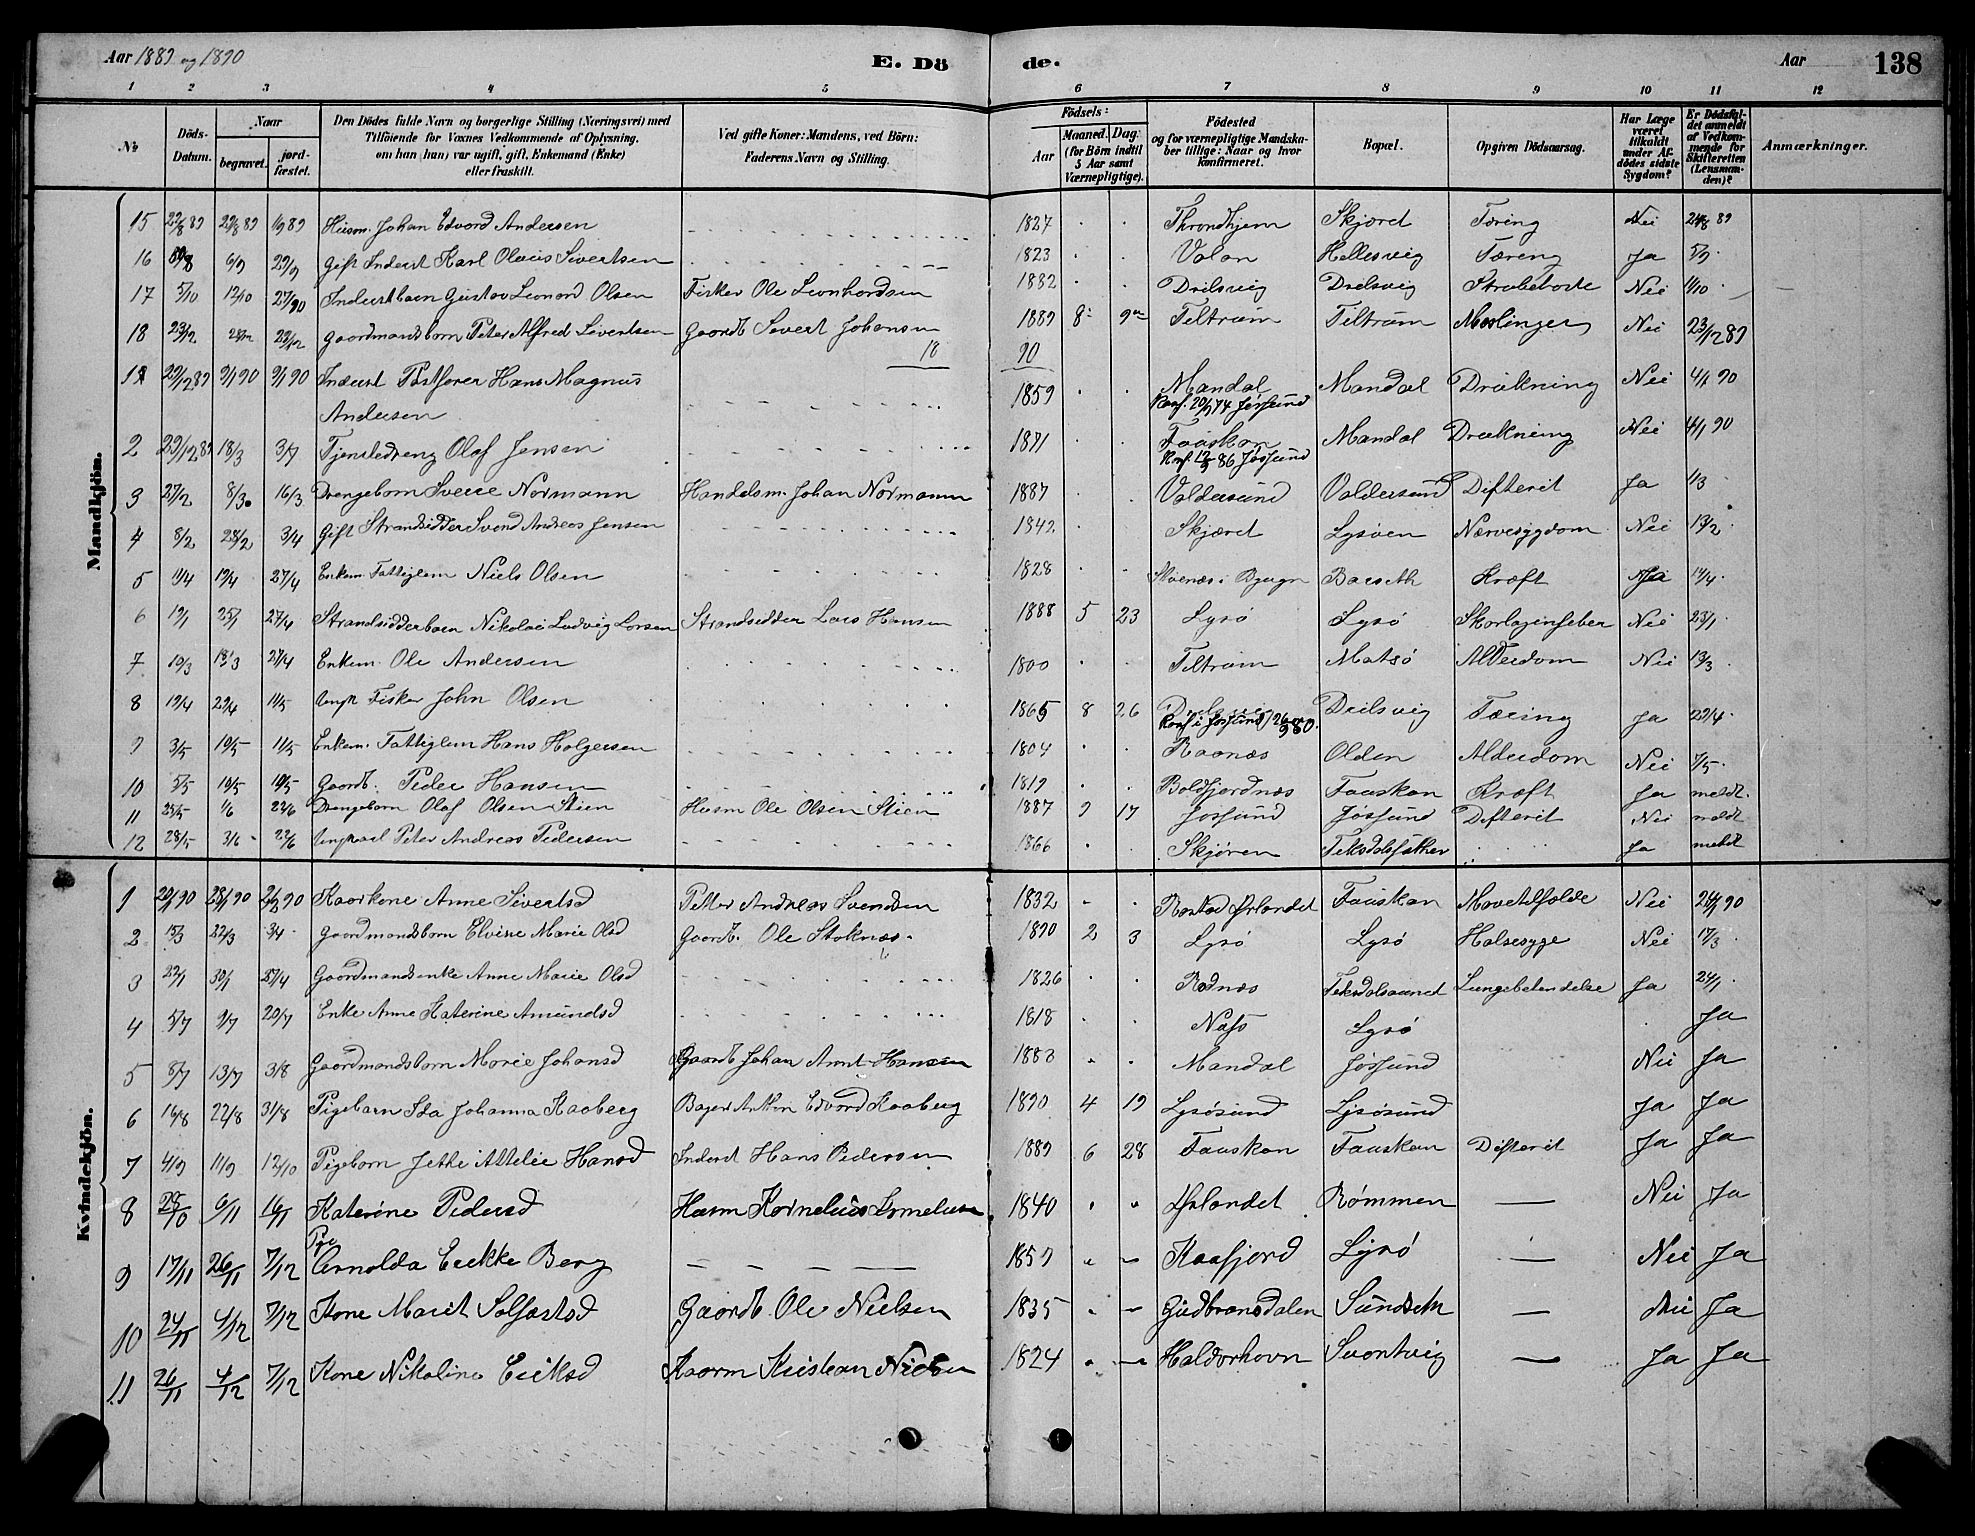 Aar 1889 og 1890 E. Dö de. Aar 138
1 2 3 4 5 6 7 8 9 10 11 12
№ Döds-Datum. Naar begravet. jordfæstet. Den Dödes fulde Navn og borgerlige Stilling (Næringsvei) med Tilföiende for Voxnes Vedkommende af Oplysning, om han (hun) var ugift, gift, Enkemand (Enke) eller fraskilt. Ved gifte Koner: Mandens, ved Börn: Faderens Navn og Stilling. Födsels: Aar Maaned. Dag. (for Börn indtil 5 Aar samt Værnepligtige). Födested og for værnepligtige Mandskaber tillige: Naar og hvor konfirmeret. Bopæl. Opgiven Dödsaarsag. Har Læge været tilkaldt under Afdödes sidste Sygdom? Er Dödsfaldet anmeldt af Vedkommende for Skifteretten (Lensmanden)? Anmærkninger.
Mandkjön.
15 22/8 89 29/8 89 1/9 89 Husm. Johan Edvard Andersen 1827 Throndhjem Skjæret Tæring Nei 24/8 89
16 6/9 29/9 Gift Inderst Karl Olaus Sivertsen 1823 Valan Hellesvig Tæring Ja 5/9
17 5/10 12/10 27/90 Inderstbarn Gustav Leonard Olsen Fisker Ole Leonhardsen 1882 Drilsvig Drilsvig Strubehoste Nei 11/10
18 23/12 28/12 29/12 Gaardmandsbarn Peter Alfred Sivertsen Gaardb. Sivert Johansen 1889 8 9 Teltrum Teltrum Meslinger Nei 23/12 89
18 90
1 29/12 89 9/1 90 9/1 90 Inderst Postfører Hans Magnus Andersen 1859 Mandal Konf. 20/9 74 Jøssund Mandal Drukning Nei 4/1 90
2 29/12 89 18/3 3/7 Tjenstedreng Olaf Jensen 1871 Fauskan Konf. 86 Jøssund Mandal Drukning Nei 4/1 90
3 27/2 8/3 16/3 Drengebarn Sverre Normann Handelsm. Johan Normann 1887 Valdersund Valdersund Difterit Ja 1/3
4 8/2 28/2 3/4 Gift Strandsidder Svend Andreas Jensen 1842 Skjæret Lysøen Nervesygdom Nei 13/2
5 11/4 19/4 27/4 Enkem. Fattiglem Niels Olsen 1828 i Bjugn Kræft Ja 14/4
6 19/1 25/1 27/4 Strandsidderbarn Nikolai Ludvig Larsen Strandsidder Lars Hansen 1888 5 23 Lysø Lysø Skarlagensfeber Nei 23/1
7 10/3 18/3 27/4 Enkem. Ole Andersen 1800 Teltrum Matsø Alderdom Nei 13/3
8 19/4 29/4 11/5 Ungk. Fisker John Olsen 1865 8 26 Drilsvig Konf i Jøssund 26/9 80. Drilsvig Tæring Ja 22/4
9 3/5 10/5 11/5 Enkem. Fattiglem Hans Holgersen 1804 Raanæs Olden Alderdom Nei 7/5
10 5/5 10/5 10/5 Gaardb. Peder Hansen 1819 Boldfjordnæs Fauskan Kræft Ja meldt.
11 25/5 1/6 22/6 Drengebarn Olaf Olsen Stien Husm Ole Olsen Stien 1887 9 17 Jøssund Jøssund Difterit Nei meldt
12 28/5 3/6 22/6 Ungkarl Peter Andreas Pedersen 1866 Skjøren Teksdalsæther Ja meldt
Kvindekjön.
1 20/1 90 28/1 90 2/2 90 Kaarkone Anne Sivertsd Petter Andreas Svendsen 1832 Ørlandet Fauskan Mavetilfælde Nei 24/1 90
2 15/3 22/3 3/4 Gaardmandsbarn Elvine Marie Olsd Gaardb. Ole Stoknæs 1890 2 3 Lysø Lysø Halsesyge Nei 17/3
3 22/1 30/1 27/4 Gaardmandsenke Anne Marie Olsd 1826 Rødnæs Teksdalsaunet Lungebetændelse Ja 24/1
4 5/7 9/7 20/7 Enke Anne Katerine Amundsd 1818 Næss Lysø Ja
5 8/7 13/7 3/8 Gaardmandsbarn Marie Johansd Gaardb. Johan Arnt Hansen 1883 Mandal Jøssund Nei Ja
6 16/8 22/8 31/8 Pigebarn Ida Johanna Kaaberg Bager Anton Edvard Kaaberg 1890 4 19 Lysøsund Lysøsund Ja Ja
7 4/9 11/9 12/10 Pigebarn Jethe Attelie Hansd Inderst Hans Pedersen 1889 6 28 Fauskan Fauskan Difterit Ja Ja
8 28/10 6/11 16/11 Katerine Pedersd Husm Kornelius Kornelius 1840 Ørlandet Rømmen — Nei Ja
9 17/11 26/11 7/12 Pige Arnolda Erikke Berg 1859 Kaafjord Lysø — Nei Ja
10 24/11 4/12 7/12 Kone Marit Solfæstsd Gaardb. Ole Nielsen 1835 Gudbransdalen Sundseth — Nei Ja
11 26/11 4/12 7/12 Kone Nikoline Eriksd Kaarm Kristian Nielsen 1824 Haldorhavn Svartvig — Ja Ja